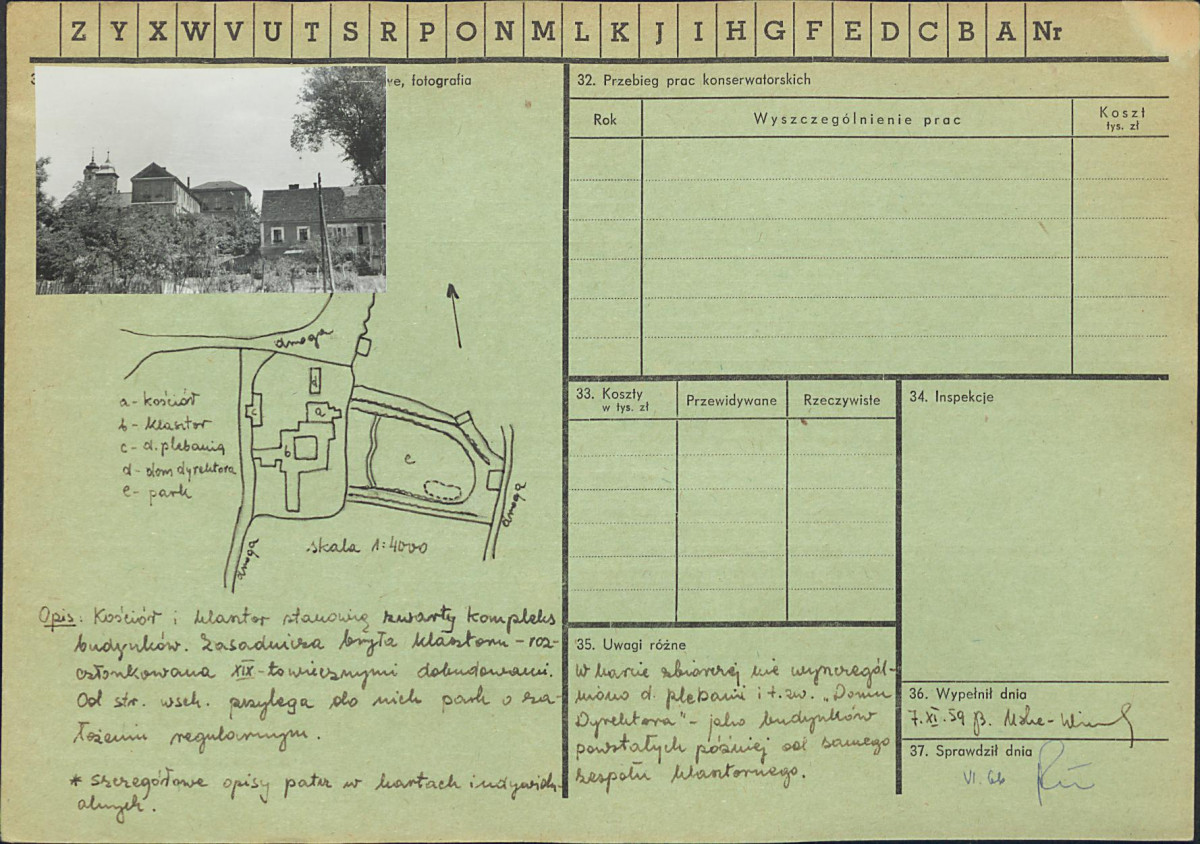 Z Y X W V U T S R P O N M L K J I H G F E D C B A Nr
we, fotografia
droga
a - kościół
b - klasztor
c - d. plebania
d - dom dyrektora
e - park
d
c
a
b
e
droga
droga
skala 1:4000
Opis: Kościół i klasztor stanowią zwarty kompleks
budynków. Zasadnicza bryła klasztoru - roz-
członkowana XIX-towiecznymi dobudowami.
Od str. wsch. przylega do nich park o za-
łożeniu regularnym.
* szczegółowe opisy patrz w kartach indywidu-
alnych.
32. Przebieg prac konserwatorskich
Rok
Wyszczególnienie prac
Koszt
tys. zł
33. Koszty
w tys. zł
Przewidywane
Rzeczywiste
34. Inspekcje
35. Uwagi różne
W karcie zbiorczej nie wyszczegól-
niono d. plebanii i t.zw. "Domu
Dyrektora" - jako budynków
powstałych później od samego
zespołu klasztornego.
36. Wypełnił dnia
7.XI.59 B.
37. Sprawdził dnia
VI.66